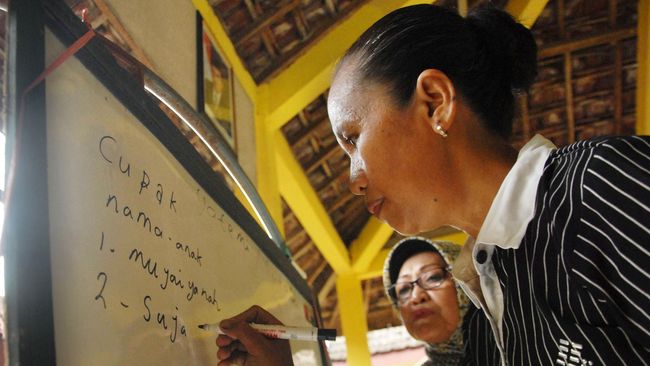 Cupak
nama-anak
1. muyaiyanah
2- Suja